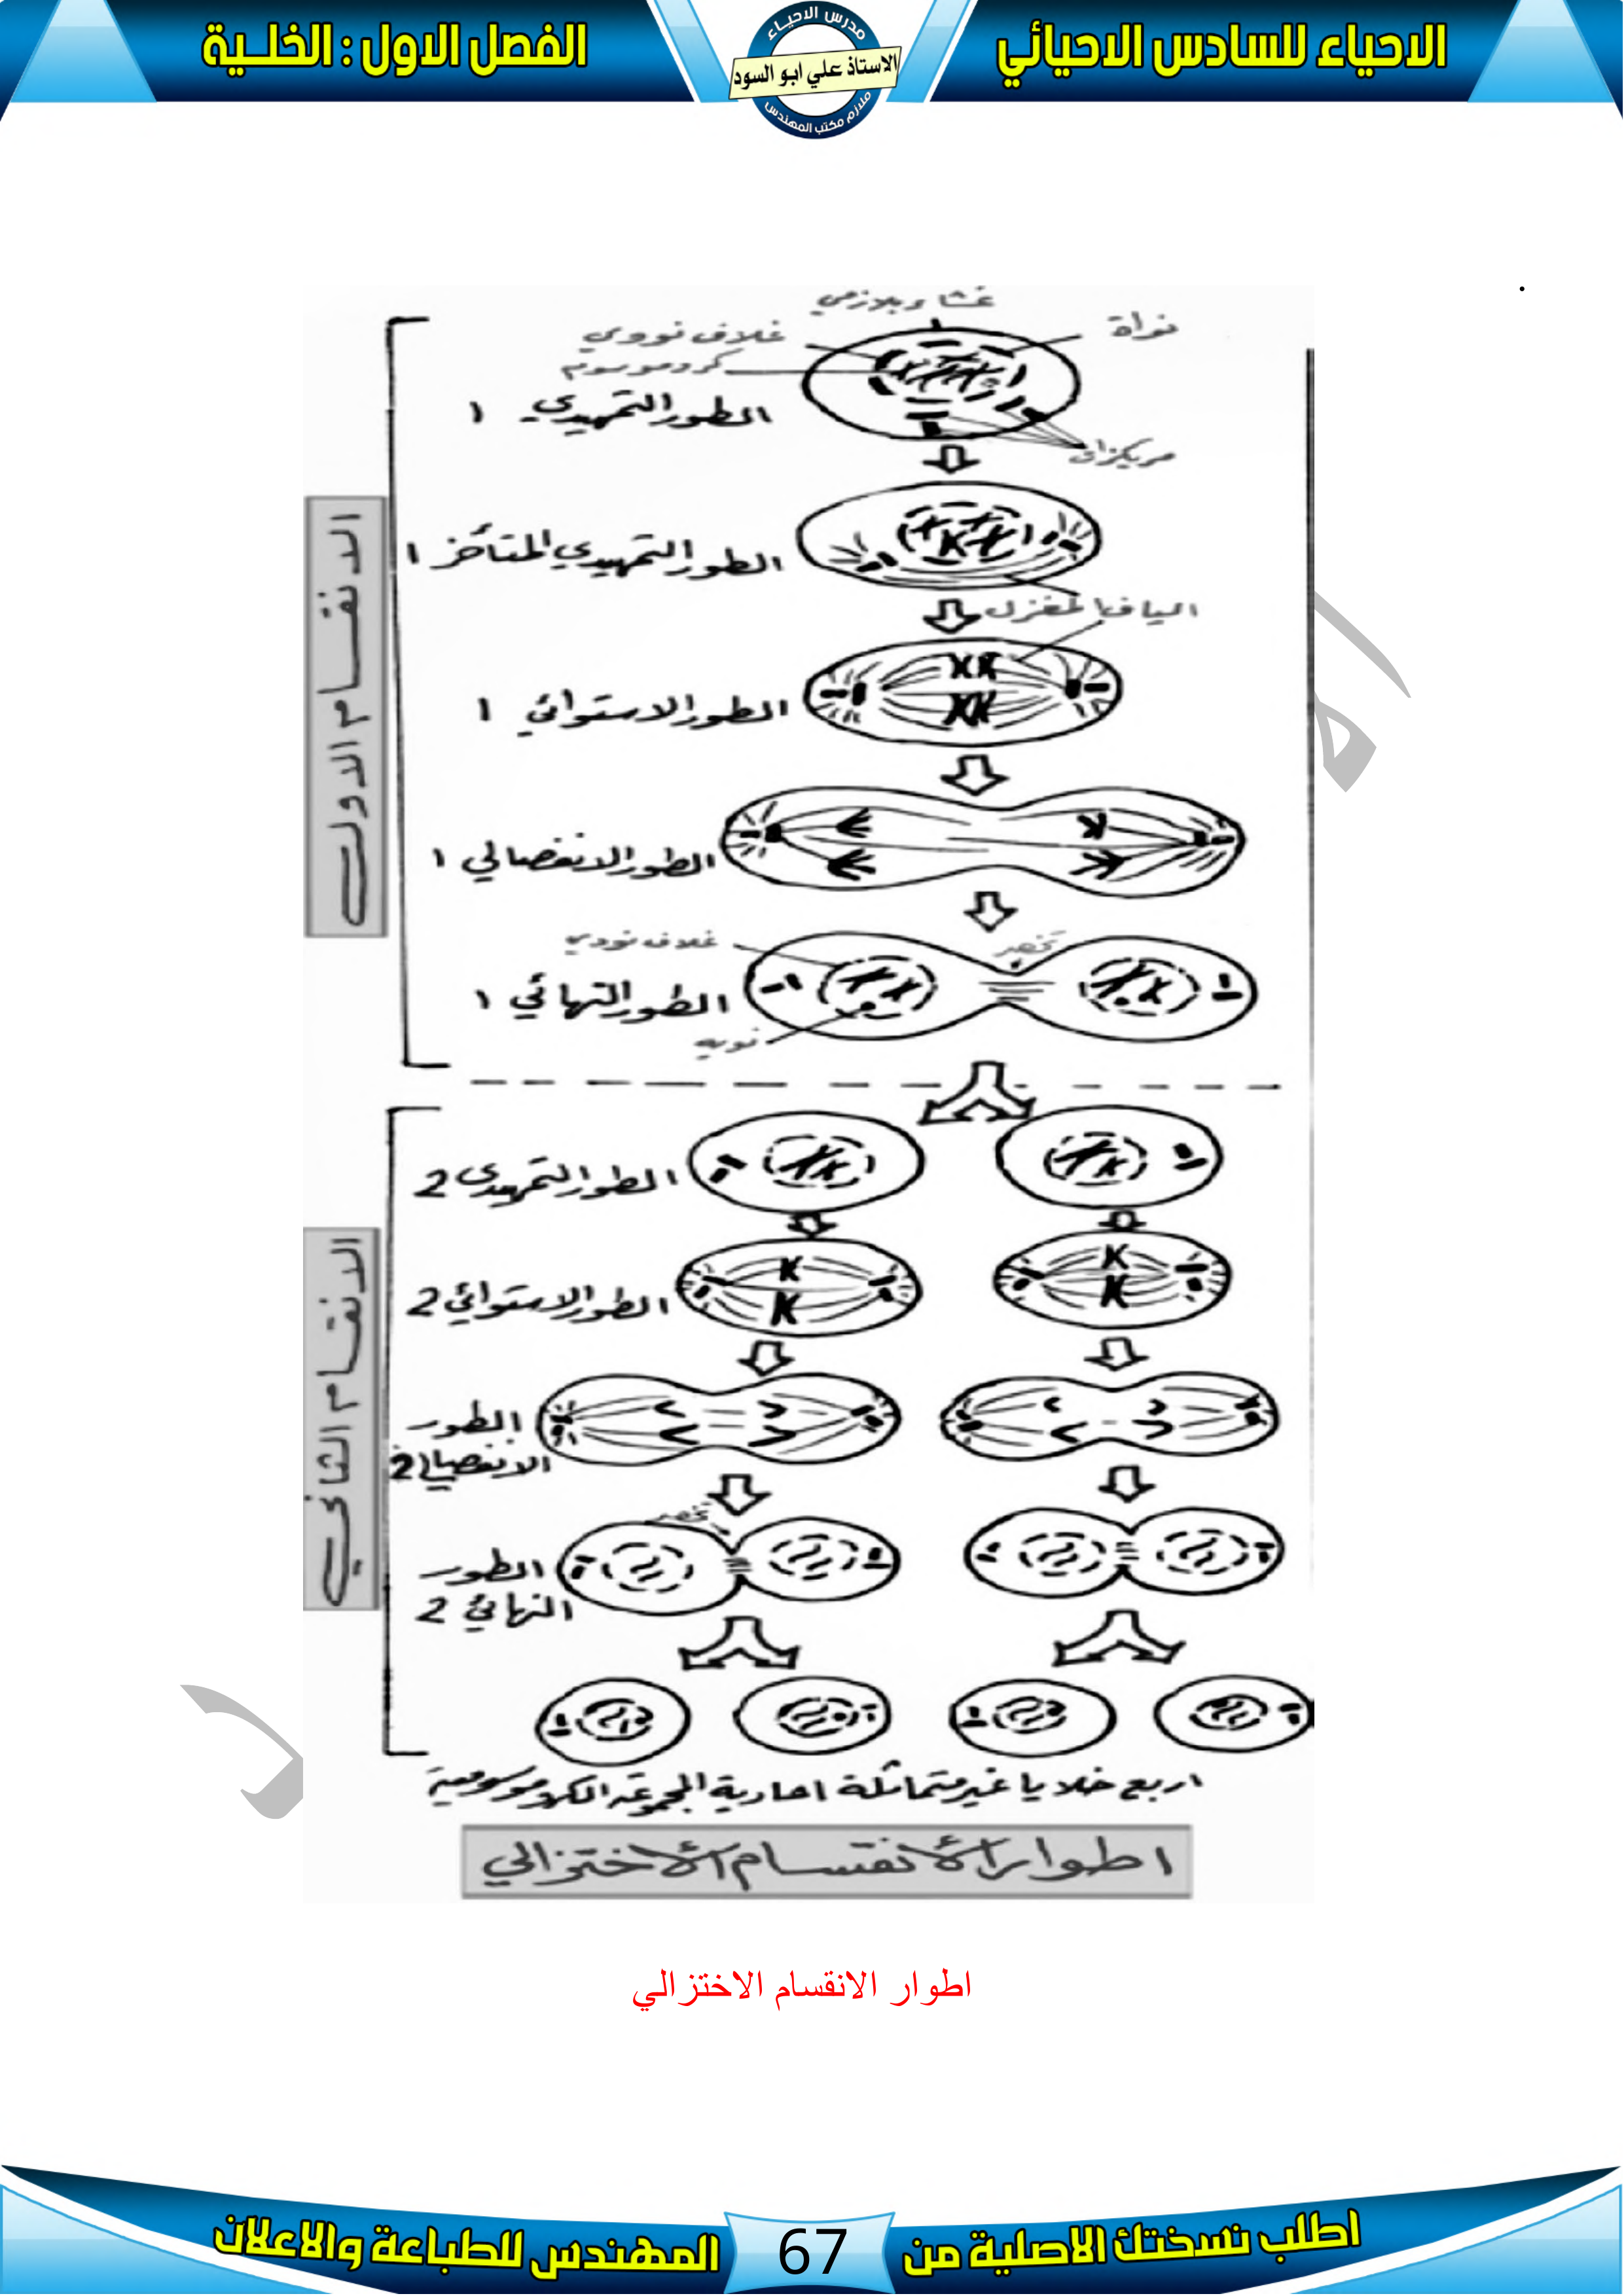 الاحياء للسادس الاحيائي
مدرس الاحياء
الاستاذ علي ابو السود
ملازم مكتب المهندس
الفصل الاول : الخلــية
.
غشاء بلازمي
نواة
غلاف نووي
كروموسوم
الطور التمهيدي ١
مريكزان
الطور التمهيدي المتأخر ١
الياف المغزل
الطور الاستوائي ١
الطور الانفصالي ١
غلاف نووي
تخصر
الطور النهائي ١
نويه
الانقسام الاول
الطور التمهيدي 2
الطور الاستوائي 2
الطور
الانفصالي 2
تخصر
الطور
النهائي 2
الانقسام الثاني
اربع خلايا غير متماثلة احادية المجموعة الكروموسومية
اطوار الأنقسام الأختزالي
اطوار الانقسام الاختزالي
اطلب نسختك الاصلية من
67
المهندس للطباعة والاعلان